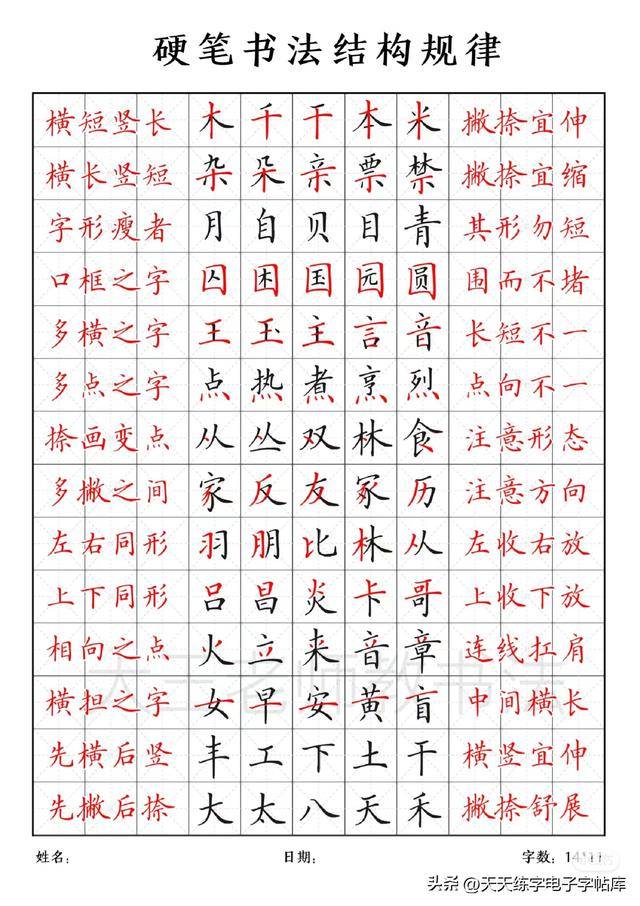 硬笔书法结构规律
横短竖长 木 千 干 本 米 撇捺宜伸
横长竖短 杂 朵 亲 票 禁 撇捺宜缩
字形瘦者 月 自 贝 目 青 其形勿短
口框之字 囚 困 国 园 圆 围而不堵
多横之字 王 玉 主 言 音 长短不一
多点之字 点 热 煮 烹 烈 点向不一
捺画变点 从 丛 双 林 食 注意形态
多撇之间 家 反 友 冢 历 注意方向
左右同形 羽 朋 比 林 从 左收右放
上下同形 吕 昌 炎 卡 哥 上收下放
相向之点 火 立 来 音 章 连线扛肩
横担之字 女 早 安 黄 盲 中间横长
先横后竖 丰 工 下 土 干 横竖宜伸
先撇后捺 大 太 八 天 禾 撇捺舒展
大王老师教书法
姓名： 日期： 字数：
头条 @天天练字电子字帖库